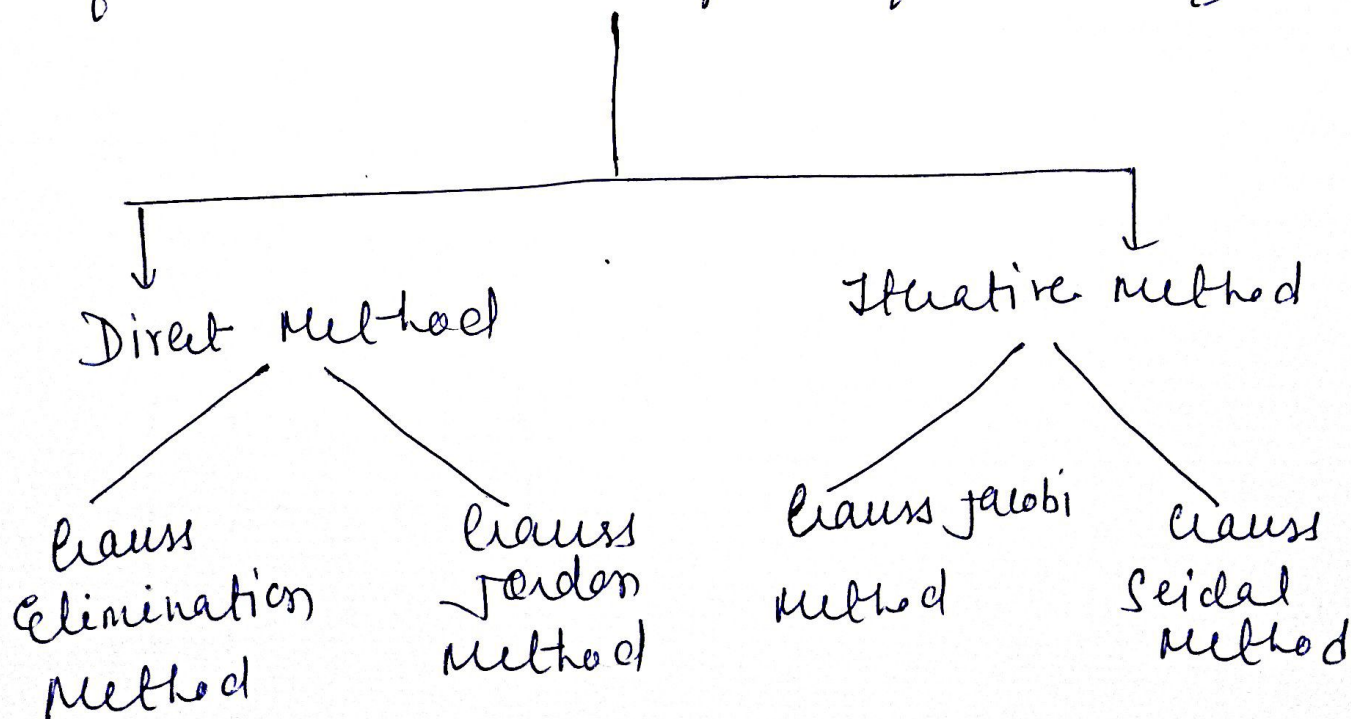 Direct Method
Iterative Method
Gauss
Elimination
Method
Gauss
Jordon
Method
Gauss Jacobi
Method
Gauss
Seidal
Method